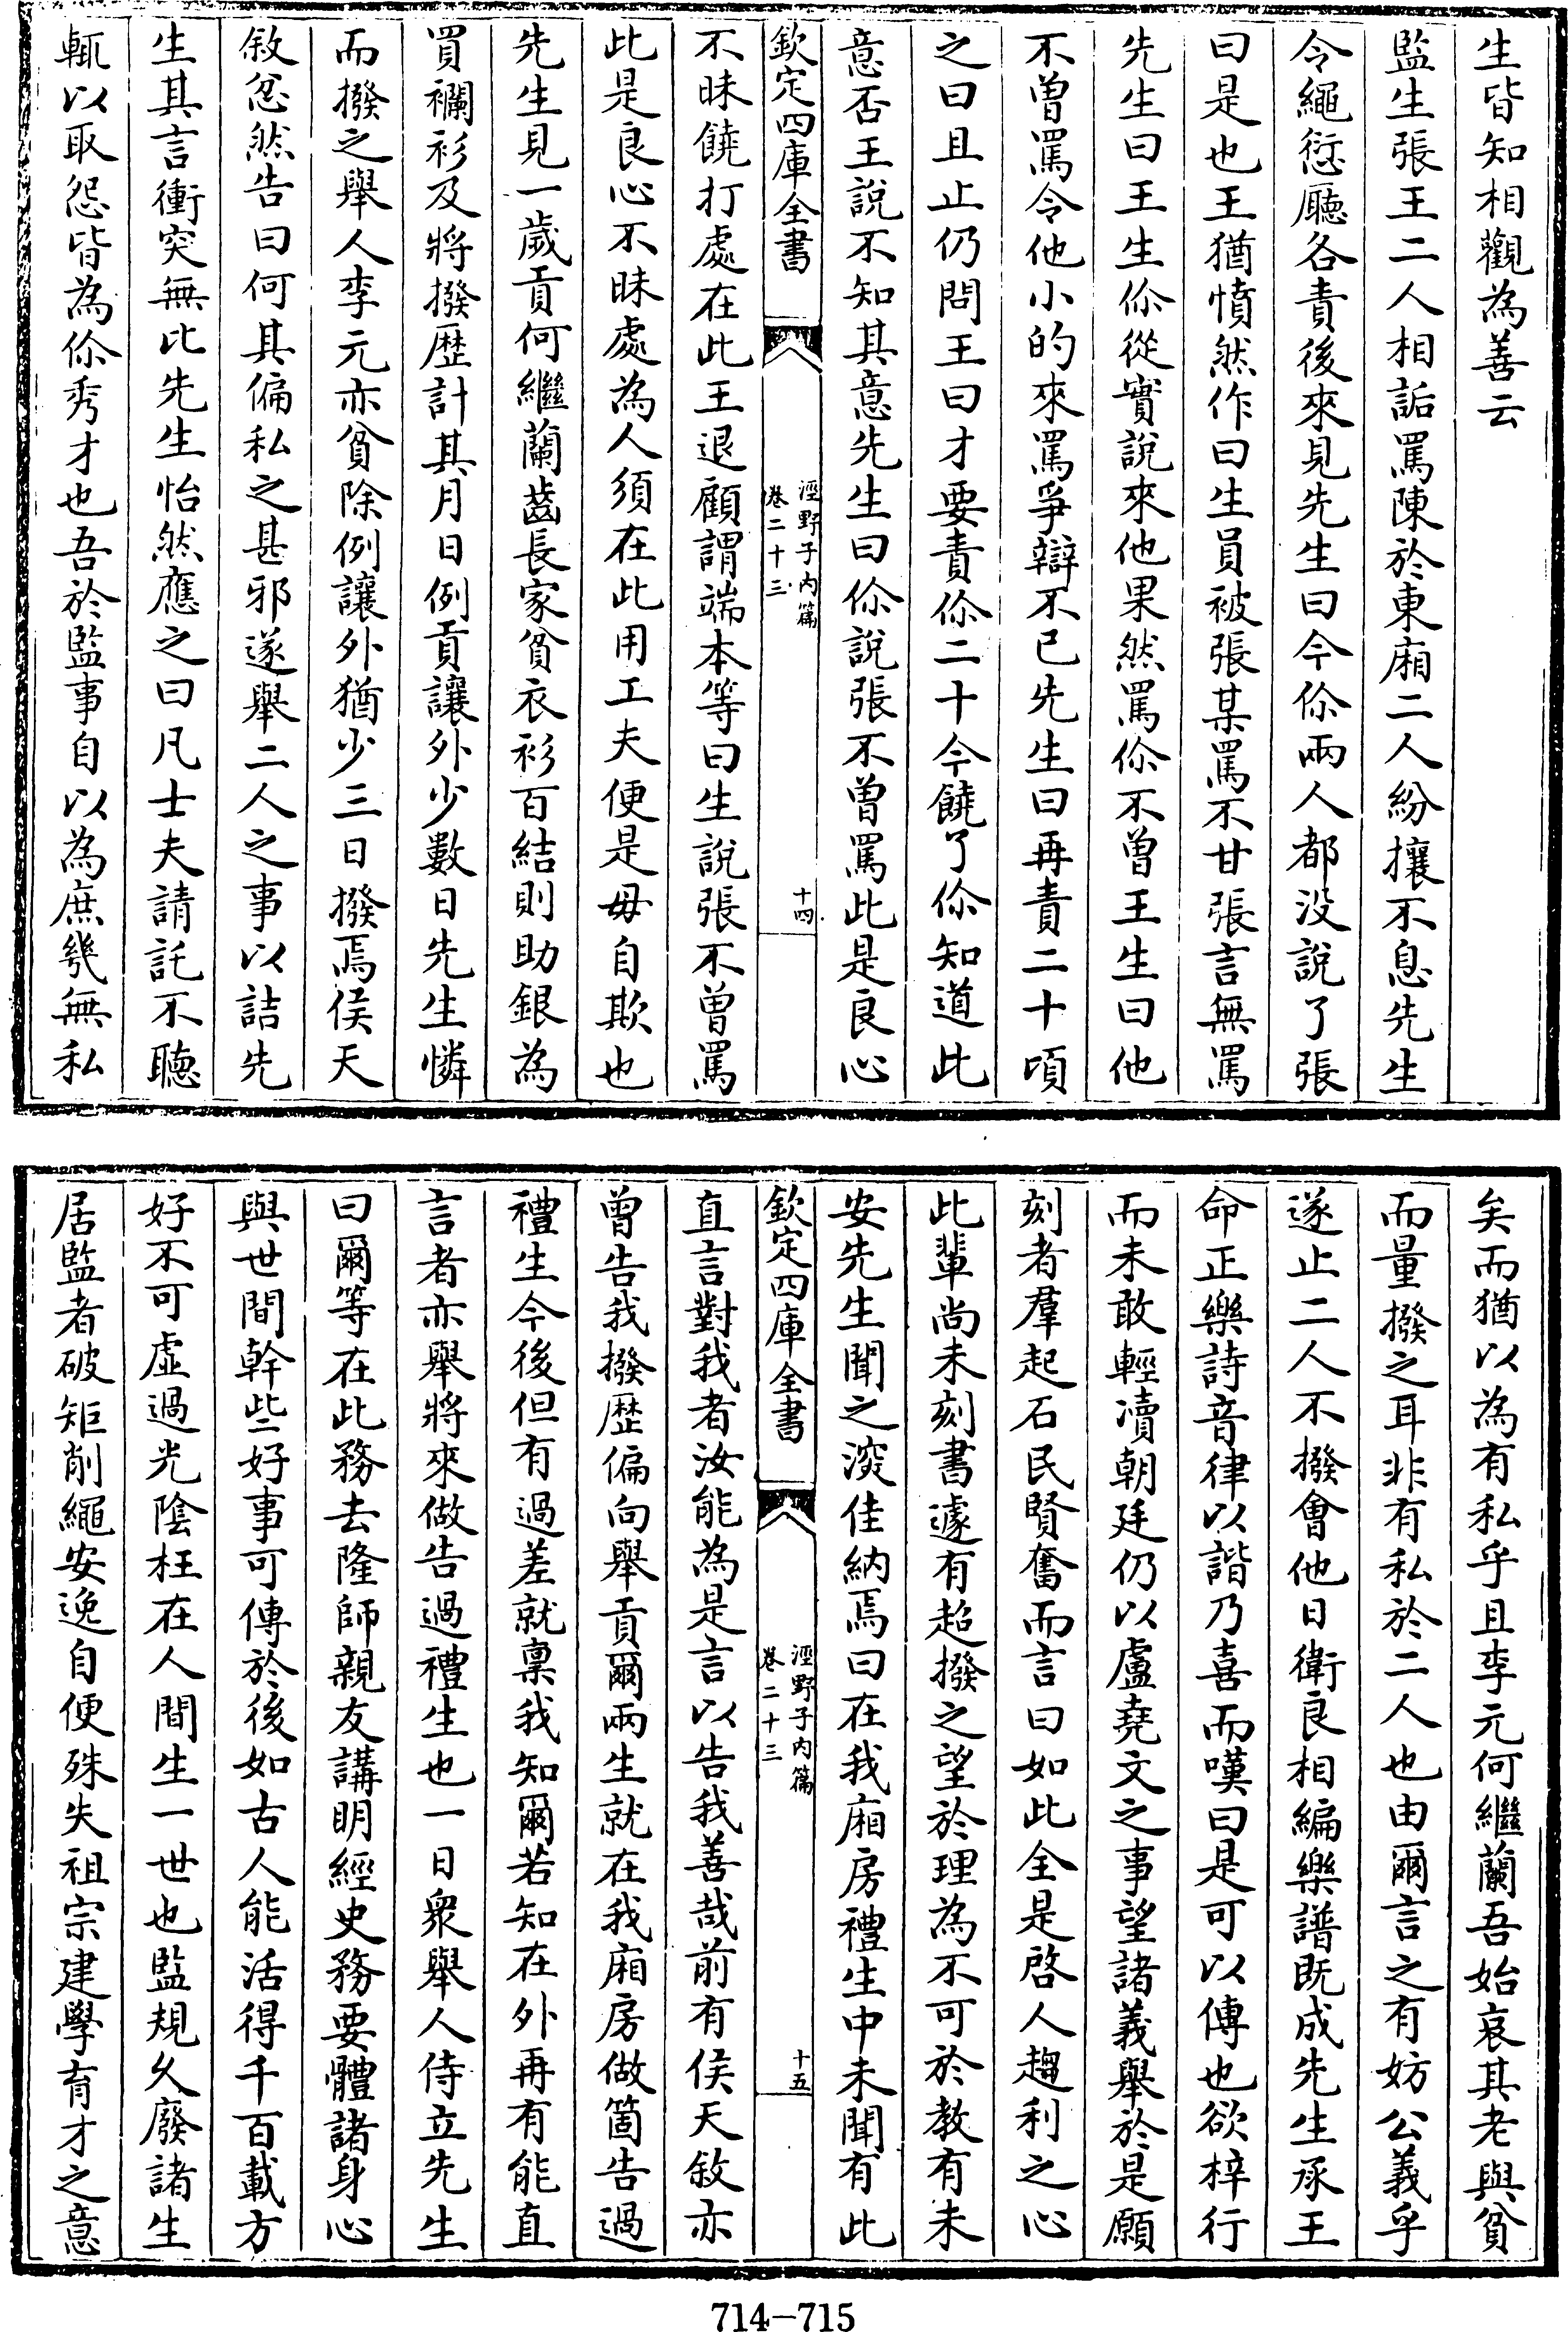 生皆知相觀為善云
監生張王二人相詬罵陳於東廂二人紛攘不息先生
令繩愆廳各責後來見先生曰今伱兩人都没說了張
曰是也王猶憤然作曰生員被張某罵不甘張言無罵
先生曰王生伱從實說來他果然罵伱不曾王生曰他
不曾罵令他小的來罵爭辯不已先生曰再責二十頃
之曰且止仍問王曰才要責伱二十今饒了伱知道此
意否王說不知其意先生曰伱說張不曾罵此是良心
欽定四庫全書
涇野子內篇
卷二十三
十四
不昧饒打處在此王退顧謂端本等曰生說張不曾罵
此是良心不昧處為人須在此用工夫便是毋自欺也
先生見一歲貢何繼蘭齒長家貧衣衫百結則助銀為
買襴衫及將撥歷計其月日例貢讓外少數日先生憐
而撥之舉人李元亦貧除例讓外猶少三日撥焉侯天
敘忿然告曰何其偏私之甚邪遂舉二人之事以詰先
生其言衝突無比先生怡然應之曰凡士夫請託不聽
輒以取怨皆為伱秀才也吾於監事自以為庶幾無私
矣而猶以為有私乎且李元何繼蘭吾始哀其老與貧
而量撥之耳非有私於二人也由爾言之有妨公義乎
遂止二人不撥會他日衛良相編樂譜既成先生承王
命正樂詩音律以諧乃喜而嘆曰是可以傳也欲梓行
而未敢輕瀆朝廷仍以盧堯文之事望諸義舉於是願
刻者羣起石民賢奮而言曰如此全是啓人趨利之心
此輩尚未刻書遽有超撥之望於理為不可於教有未
安先生聞之深佳納焉曰在我廂房禮生中未聞有此
欽定四庫全書
涇野子內篇
卷二十三
十五
直言對我者汝能為是言以告我善哉前有侯天敘亦
曾告我撥歷偏向舉貢爾兩生就在我廂房做箇告過
禮生今後但有過差就稟我知爾若知在外再有能直
言者亦舉將來做告過禮生也一日眾舉人侍立先生
曰爾等在此務去隆師親友講明經史務要體諸身心
與世間幹些好事可傳於後如古人能活得千百載方
好不可虛過光陰枉在人間生一世也監規久廢諸生
居監者破矩削繩安逸自便殊失祖宗建學育才之意
714-715